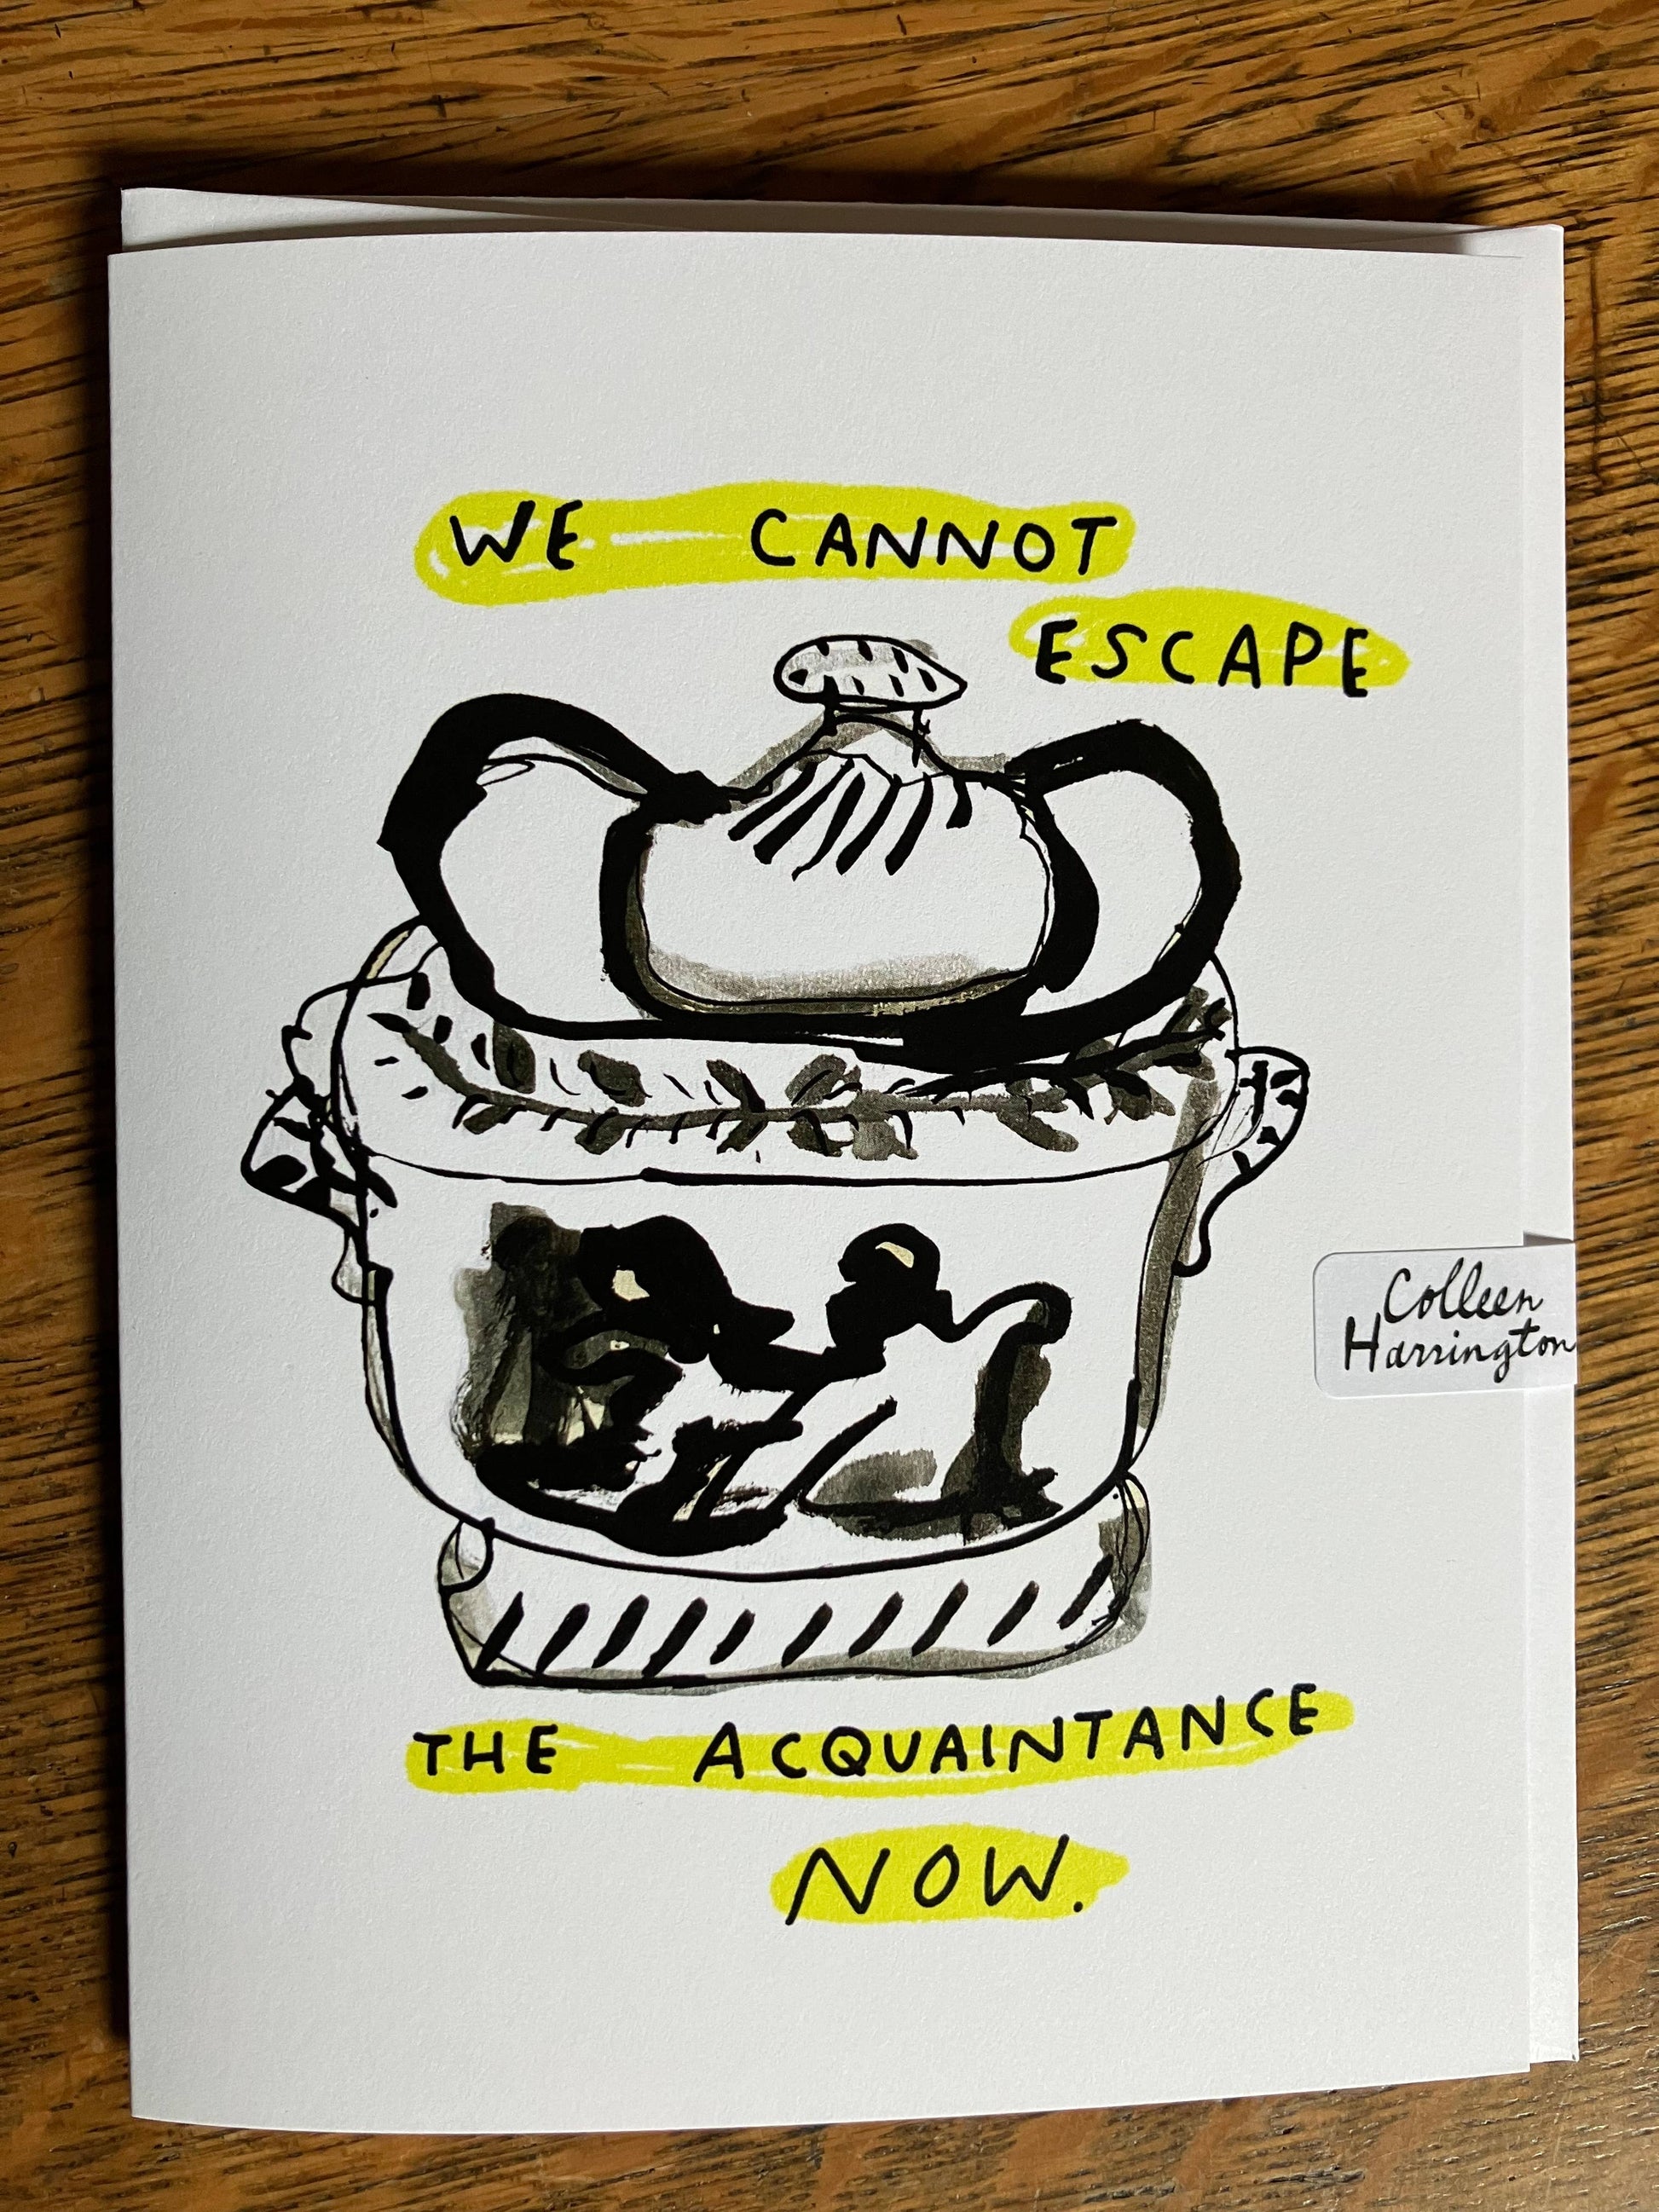 WE CANNOT
ESCAPE
Colleen
Harrington
THE ACQUAINTANCE
NOW.